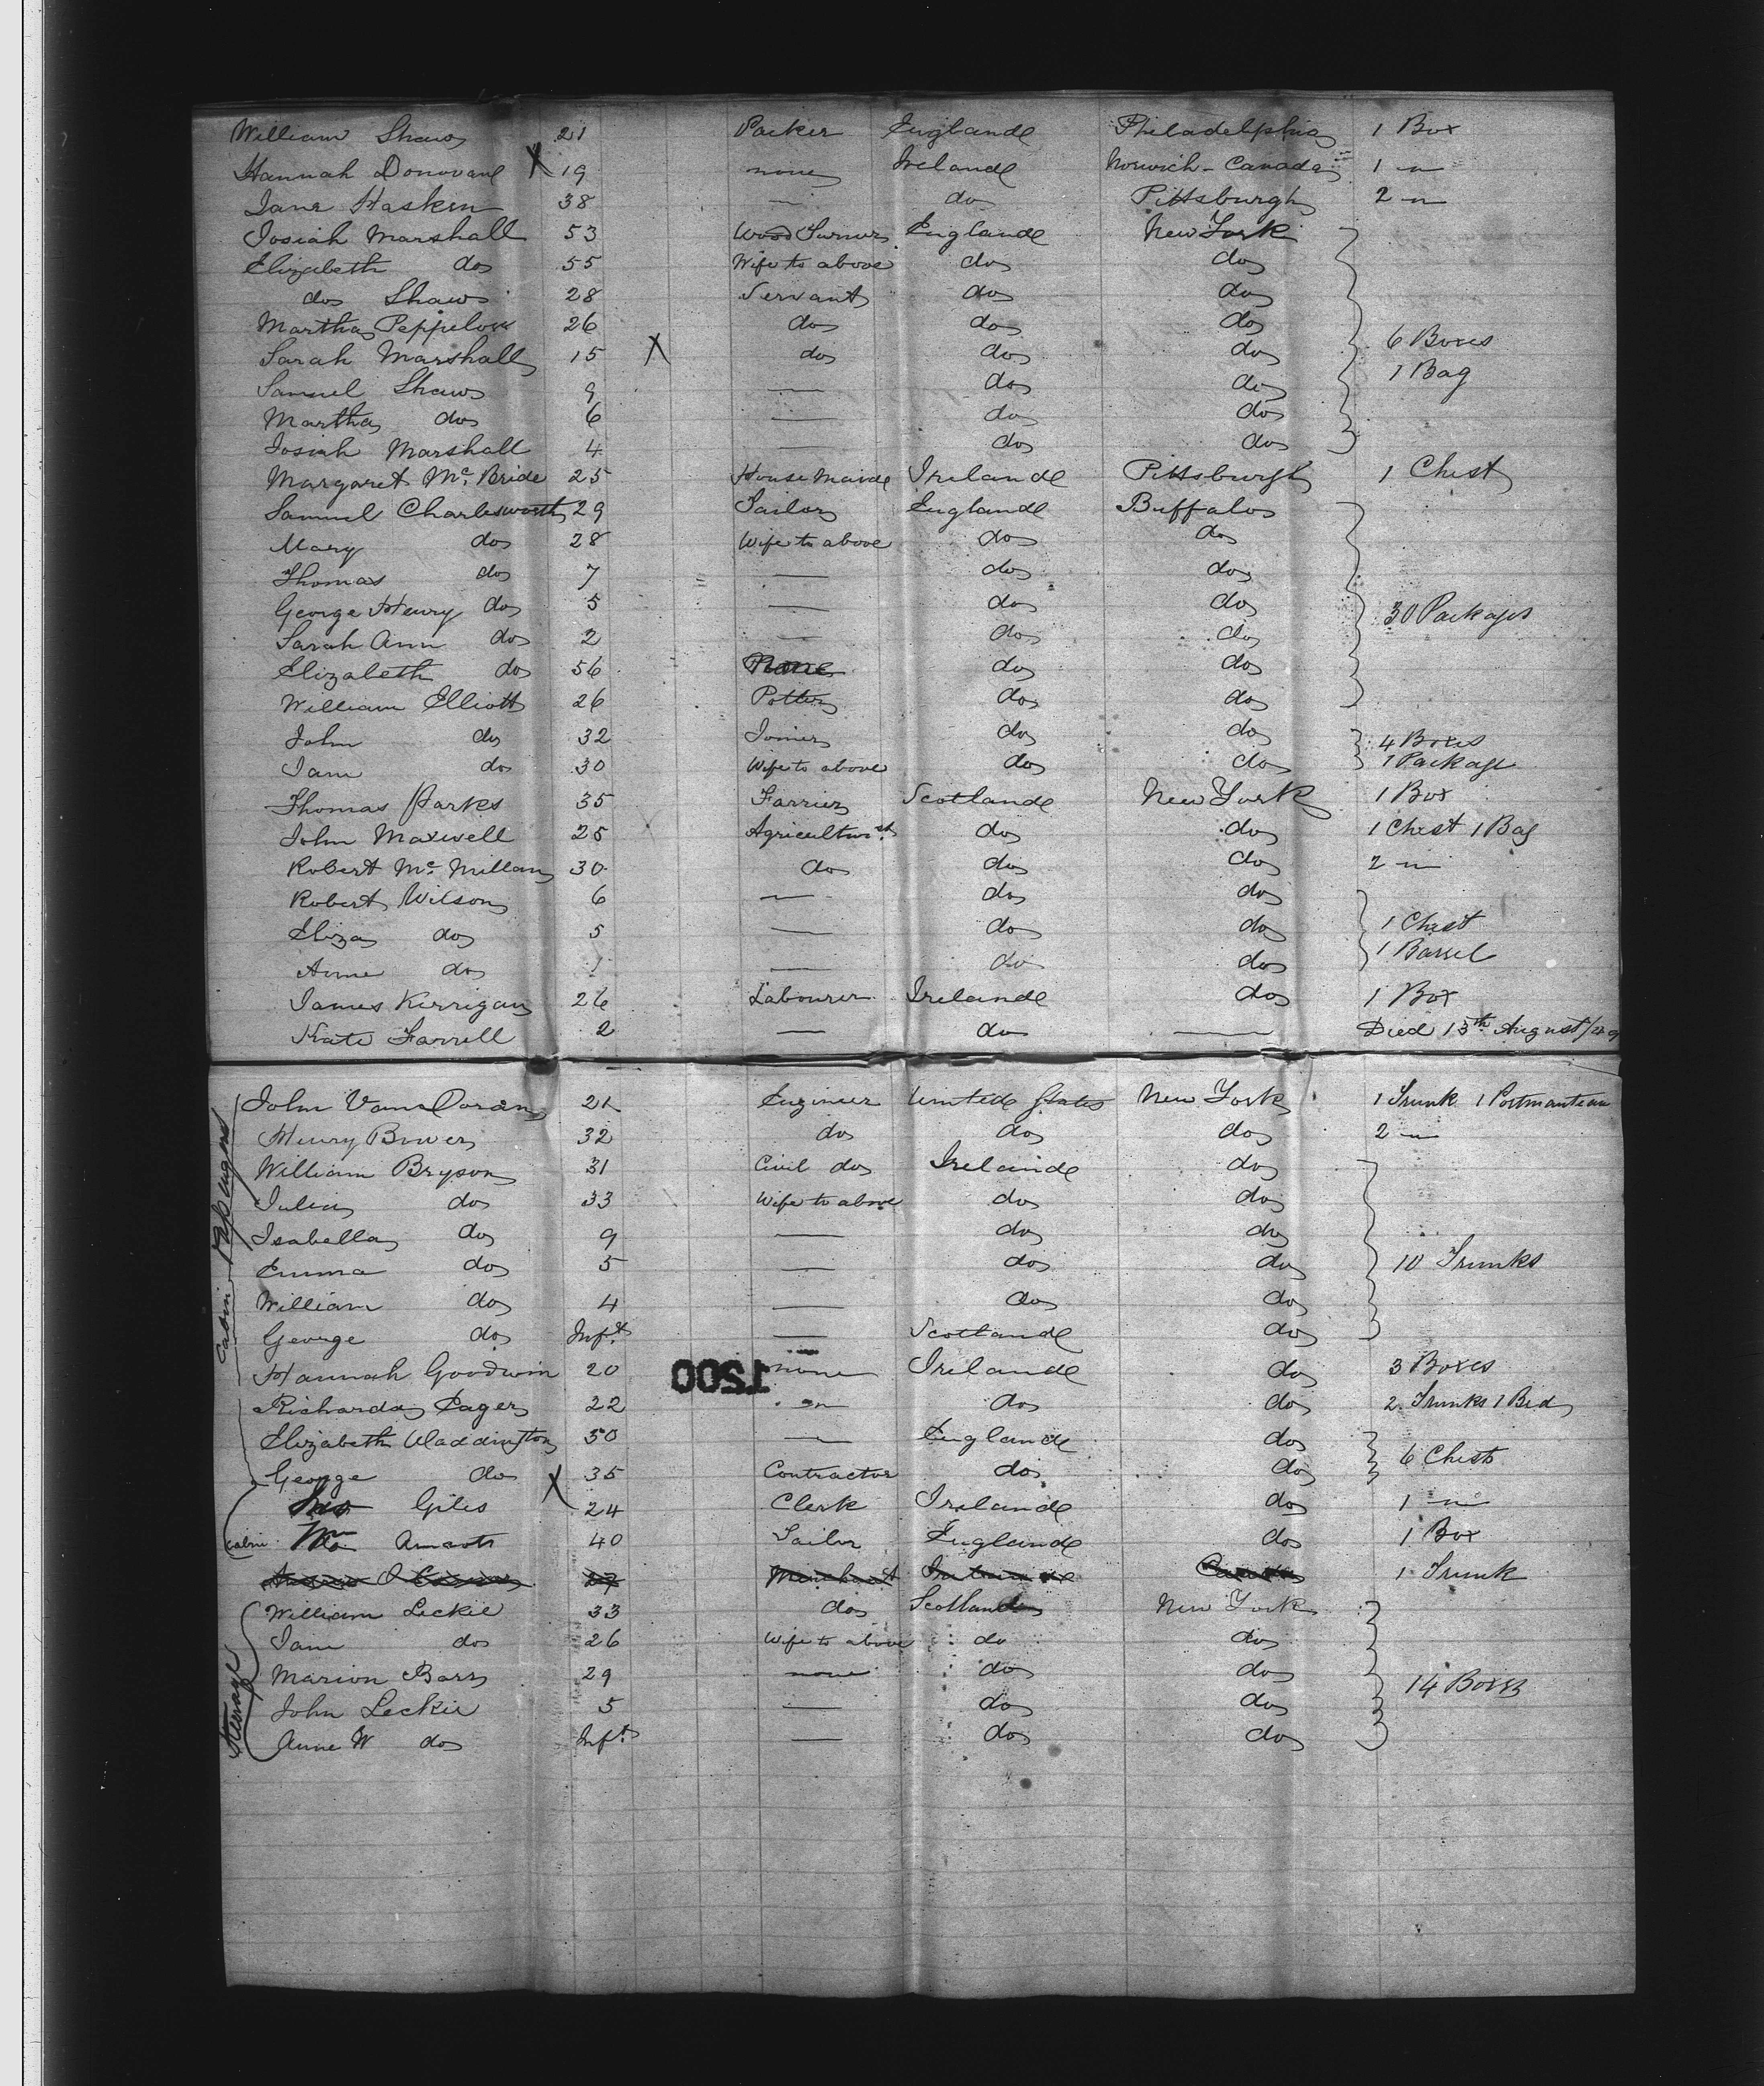 William Shaw 21 Packer England Philadelphia 1 Box
Hannah Donovan X 19 none Ireland Norwich - Canada 1 "
Jane Hasken 38 — do Pittsburgh 2 "
Josiah Marshall 53 Wood Turner England New York
Elizabeth do 55 Wife to above do do
do Shaw 28 Servant do do
Martha Peppelow 26 do do do
Sarah Marshall 15 X do do do 6 Boxes
Samuel Shaw 9 — do do 1 Bag
Martha do 6 — do do
Josiah Marshall 4 — do do
Margaret Mc Bride 25 House Maid Ireland Pittsburgh 1 Chest
Samuel Charlesworth 29 Tailor England Buffalo
Mary do 28 Wife to above do do
Thomas do 7 — do do
George Henry do 5 — do do 30 Packages
Sarah Ann do 2 — do do
Elizabeth do 56 None do do
William Elliott 26 Potter do do
John do 32 Joiner do do 4 Boxes
Jane do 30 Wife to above do do 1 Package
Thomas Parks 35 Farrier Scotland New York 1 Box
John Maxwell 25 Agriculturst do do 1 Chest 1 Bag
Robert Mc Millan 30 do do do 2 "
Robert Wilson 6 — do do
Eliza do 5 — do do 1 Chest
Anne do 1 — do do 1 Barrel
James Kerrigan 26 Labourer Ireland do 1 Box
Kate Farrell 2 — do — Died 15th August/69
Cabin Passengers
John Van Doran 21 Engineer United States New York 1 Trunk 1 Portmanteau
Henry Bower 32 do do do 2 "
William Bryson 31 Civil do Ireland do
Julia do 33 Wife to above do do
Isabella do 9 — do do
Emma do 5 — do do 10 Trunks
William do 4 — do do
George do Inft — Scotland do
Hannah Goodwin 20 none Ireland do 3 Boxes
1200
Richarda Eager 22 " do do 2 Trunks 1 Bed
Elizabeth Waddington 50 — England do
George do 35 Contractor do do 6 Chests
Giles X 24 Clerk Ireland do 1 "
Cabin Wm 40 Tailor England do 1 Box
Merchant 1 Trunk
Steerage
William Leckie 33 do Scotland New York
Jane do 26 Wife to above do do
Marion Barr 29 none do do 14 Boxes
John Leckie 5 — do do
Anne W do Inft — do do